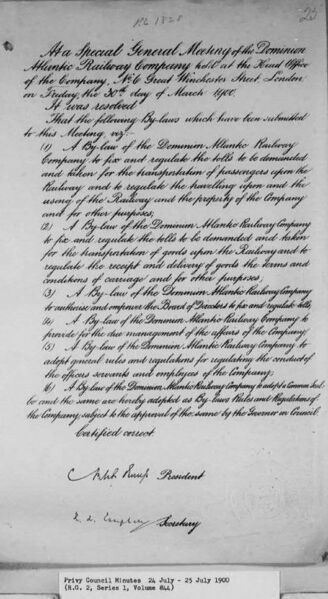 23
At a Special General Meeting of the Dominion
Atlantic Railway Company held at the Head Office
of the Company, No 6 Great Winchester Street London
on Friday, the 30th day of March 1900.
It was resolved
That the following By-laws which have been submitted
to this Meeting, viz:-
(1) A By-law of the Dominion Atlantic Railway
Company to fix and regulate the tolls to be demanded
and taken for the transportation of passengers upon the
Railway and to regulate the travelling upon and the
using of the Railway and the property of the Company
and for other purposes;
(2) A By-law of the Dominion Atlantic Railway Company
to fix and regulate the tolls to be demanded and taken
for the transportation of goods upon the Railway and to
regulate the receipt and delivery of goods the terms and
conditions of carriage and for other purposes;
(3) A By-law of the Dominion Atlantic Railway Company
to authorise and empower the Board of Directors to fix and regulate tolls;
(4) A By-law of the Dominion Atlantic Railway Company to
provide for the due management of the affairs of the Company;
(5) A By-law of the Dominion Atlantic Railway Company to
adopt general rules and regulations for regulating the conduct of
the officers servants and employees of the Company;
(6) A By-law of the Dominion Atlantic Railway Company to adopt a Common Seal
be and the same are hereby adopted as By-laws Rules and Regulations of
the Company, subject to the approval of the same by the Governor in Council.
Certified correct.
President
Secretary
Privy Council Minutes 24 July - 25 July 1900
(R.G. 2, Series 1, Volume 844)